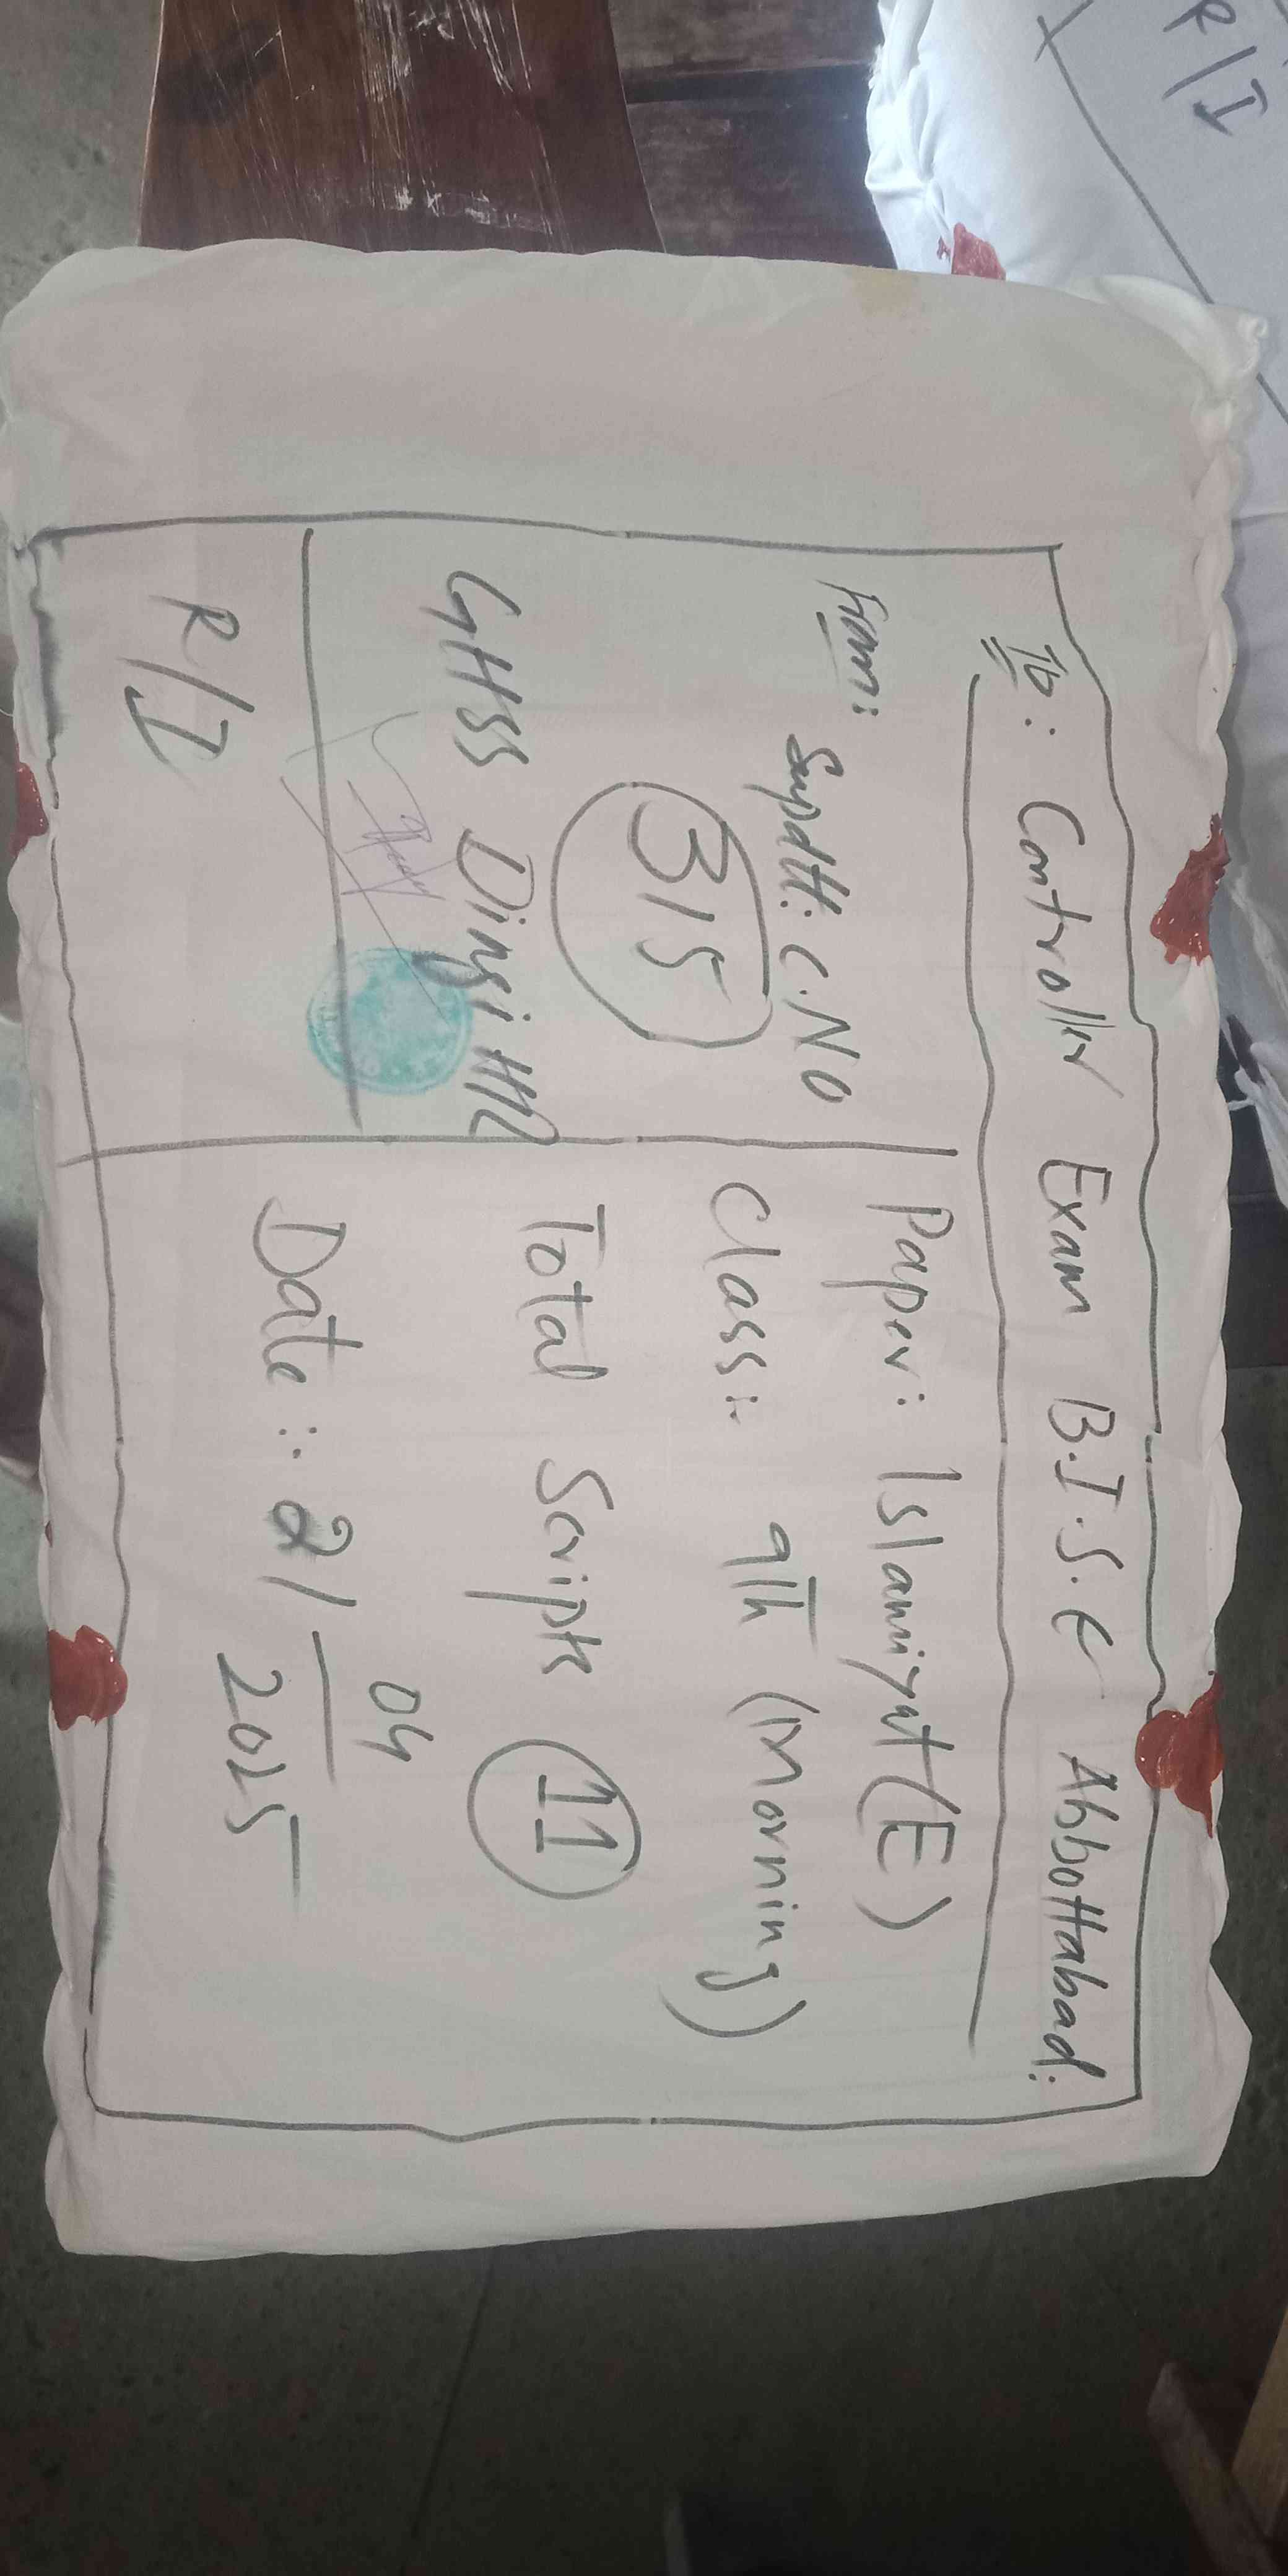 To: Controller Exam B.I.S.E Abbottabad:
From:
Supdtt: C.NO
315
GHSS Dingi HR
R/I
Paper: Islamiyat (E)
Class:- 9th (Morning)
Total Scripts 11
Date:- 21/04/2025
R/I